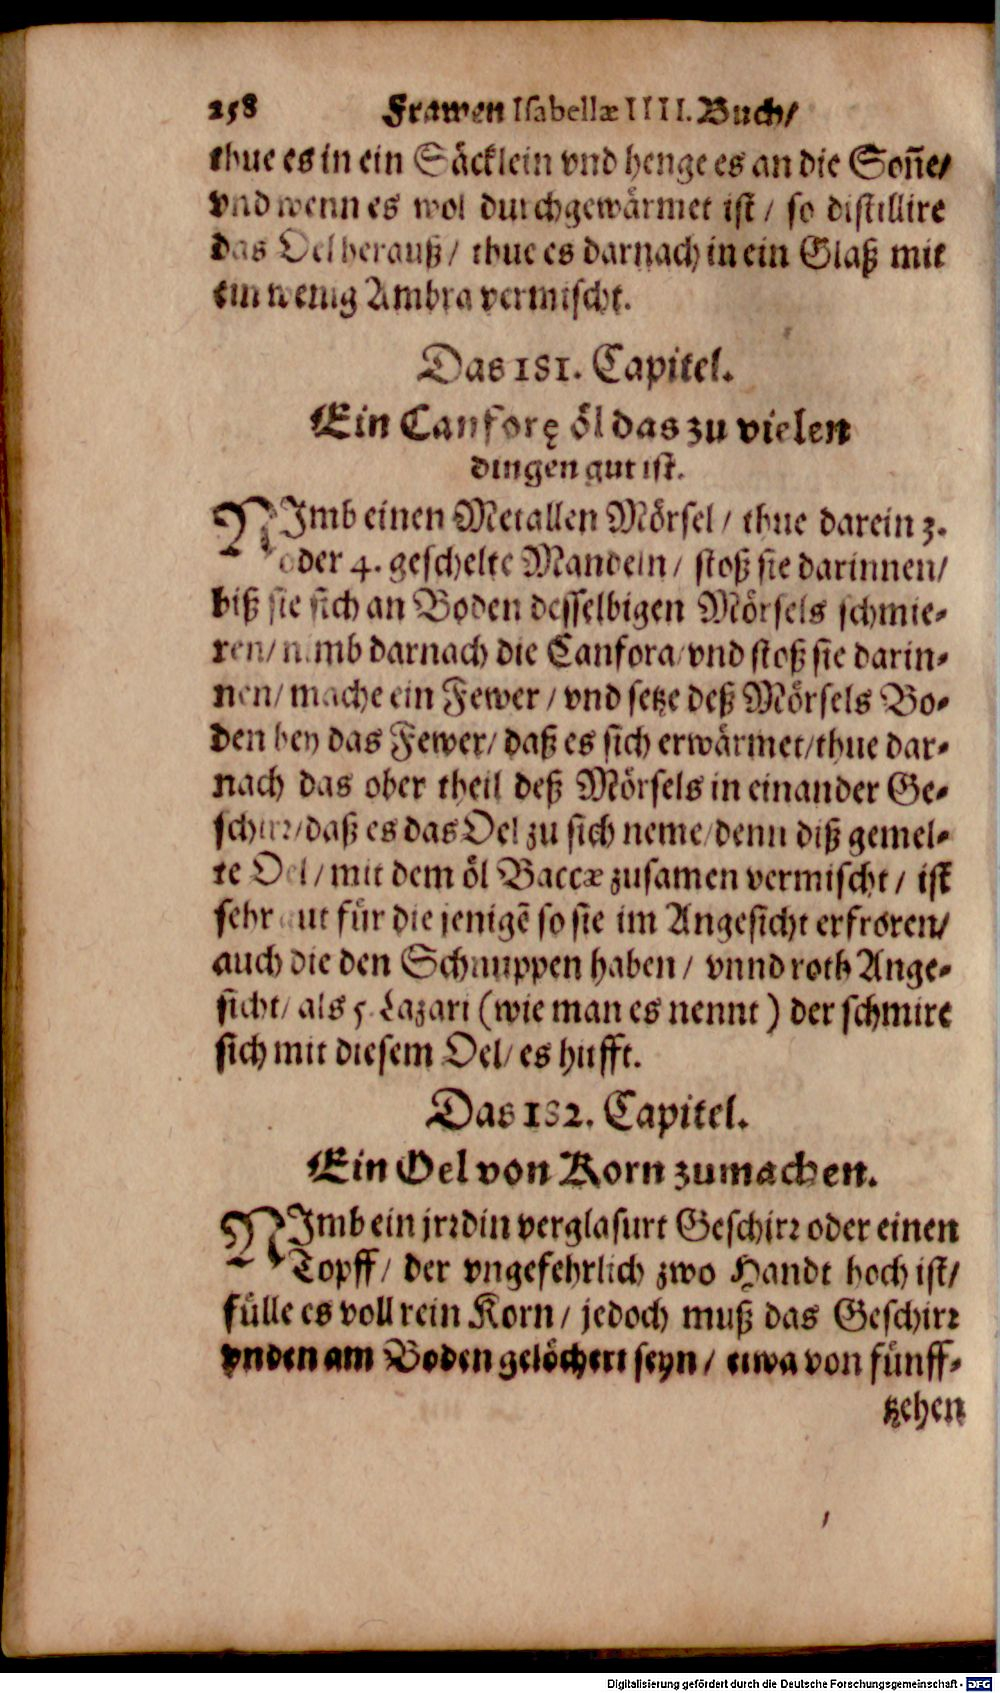 258 Frawen Isabellæ IIII. Buch/
thue es in ein Säcklein vnd henge es an die Son̄e/
vnd wenn es wol durchgewärmet ist / so distillire
das Oel herauß / thue es darnach in ein Glaß mit
ein wenig Ambra vermischt.
Das 181. Capitel.
Ein Canforę öl das zu vielen
dingen gut ist.
NImb einen Metallen Mörsel / thue darein 3.
oder 4. geschelte Mandeln / stoß sie darinnen/
biß sie sich an Boden desselbigen Mörsels schmie-
ren/ nimb darnach die Canfora/ vnd stoß sie darin-
nen/ mache ein Fewer / vnd setze deß Mörsels Bo-
den bey das Fewer/ daß es sich erwärmet/ thue dar-
nach das ober theil deß Mörsels in einander Ge-
schirr/ daß es das Oel zu sich neme/ denn diß gemel-
te Oel / mit dem öl Baccæ zusamen vermischt / ist
sehr gut für die jenigẽ so sie im Angesicht erfroren/
auch die den Schnuppen haben / vnnd roth Ange-
sicht/ als 5. Lazari (wie man es nennt) der schmire
sich mit diesem Oel/ es hilfft.
Das 182. Capitel.
Ein Oel von Korn zumachen.
NImb ein jrrdin verglasurt Geschirr oder einen
Topff / der vngefehrlich zwo Handt hoch ist/
fülle es voll rein Korn / jedoch muß das Geschirr
vnden am Boden gelöchert seyn / etwa von fünff-
tzehen
Digitalisierung gefördert durch die Deutsche Forschungsgemeinschaft - DFG